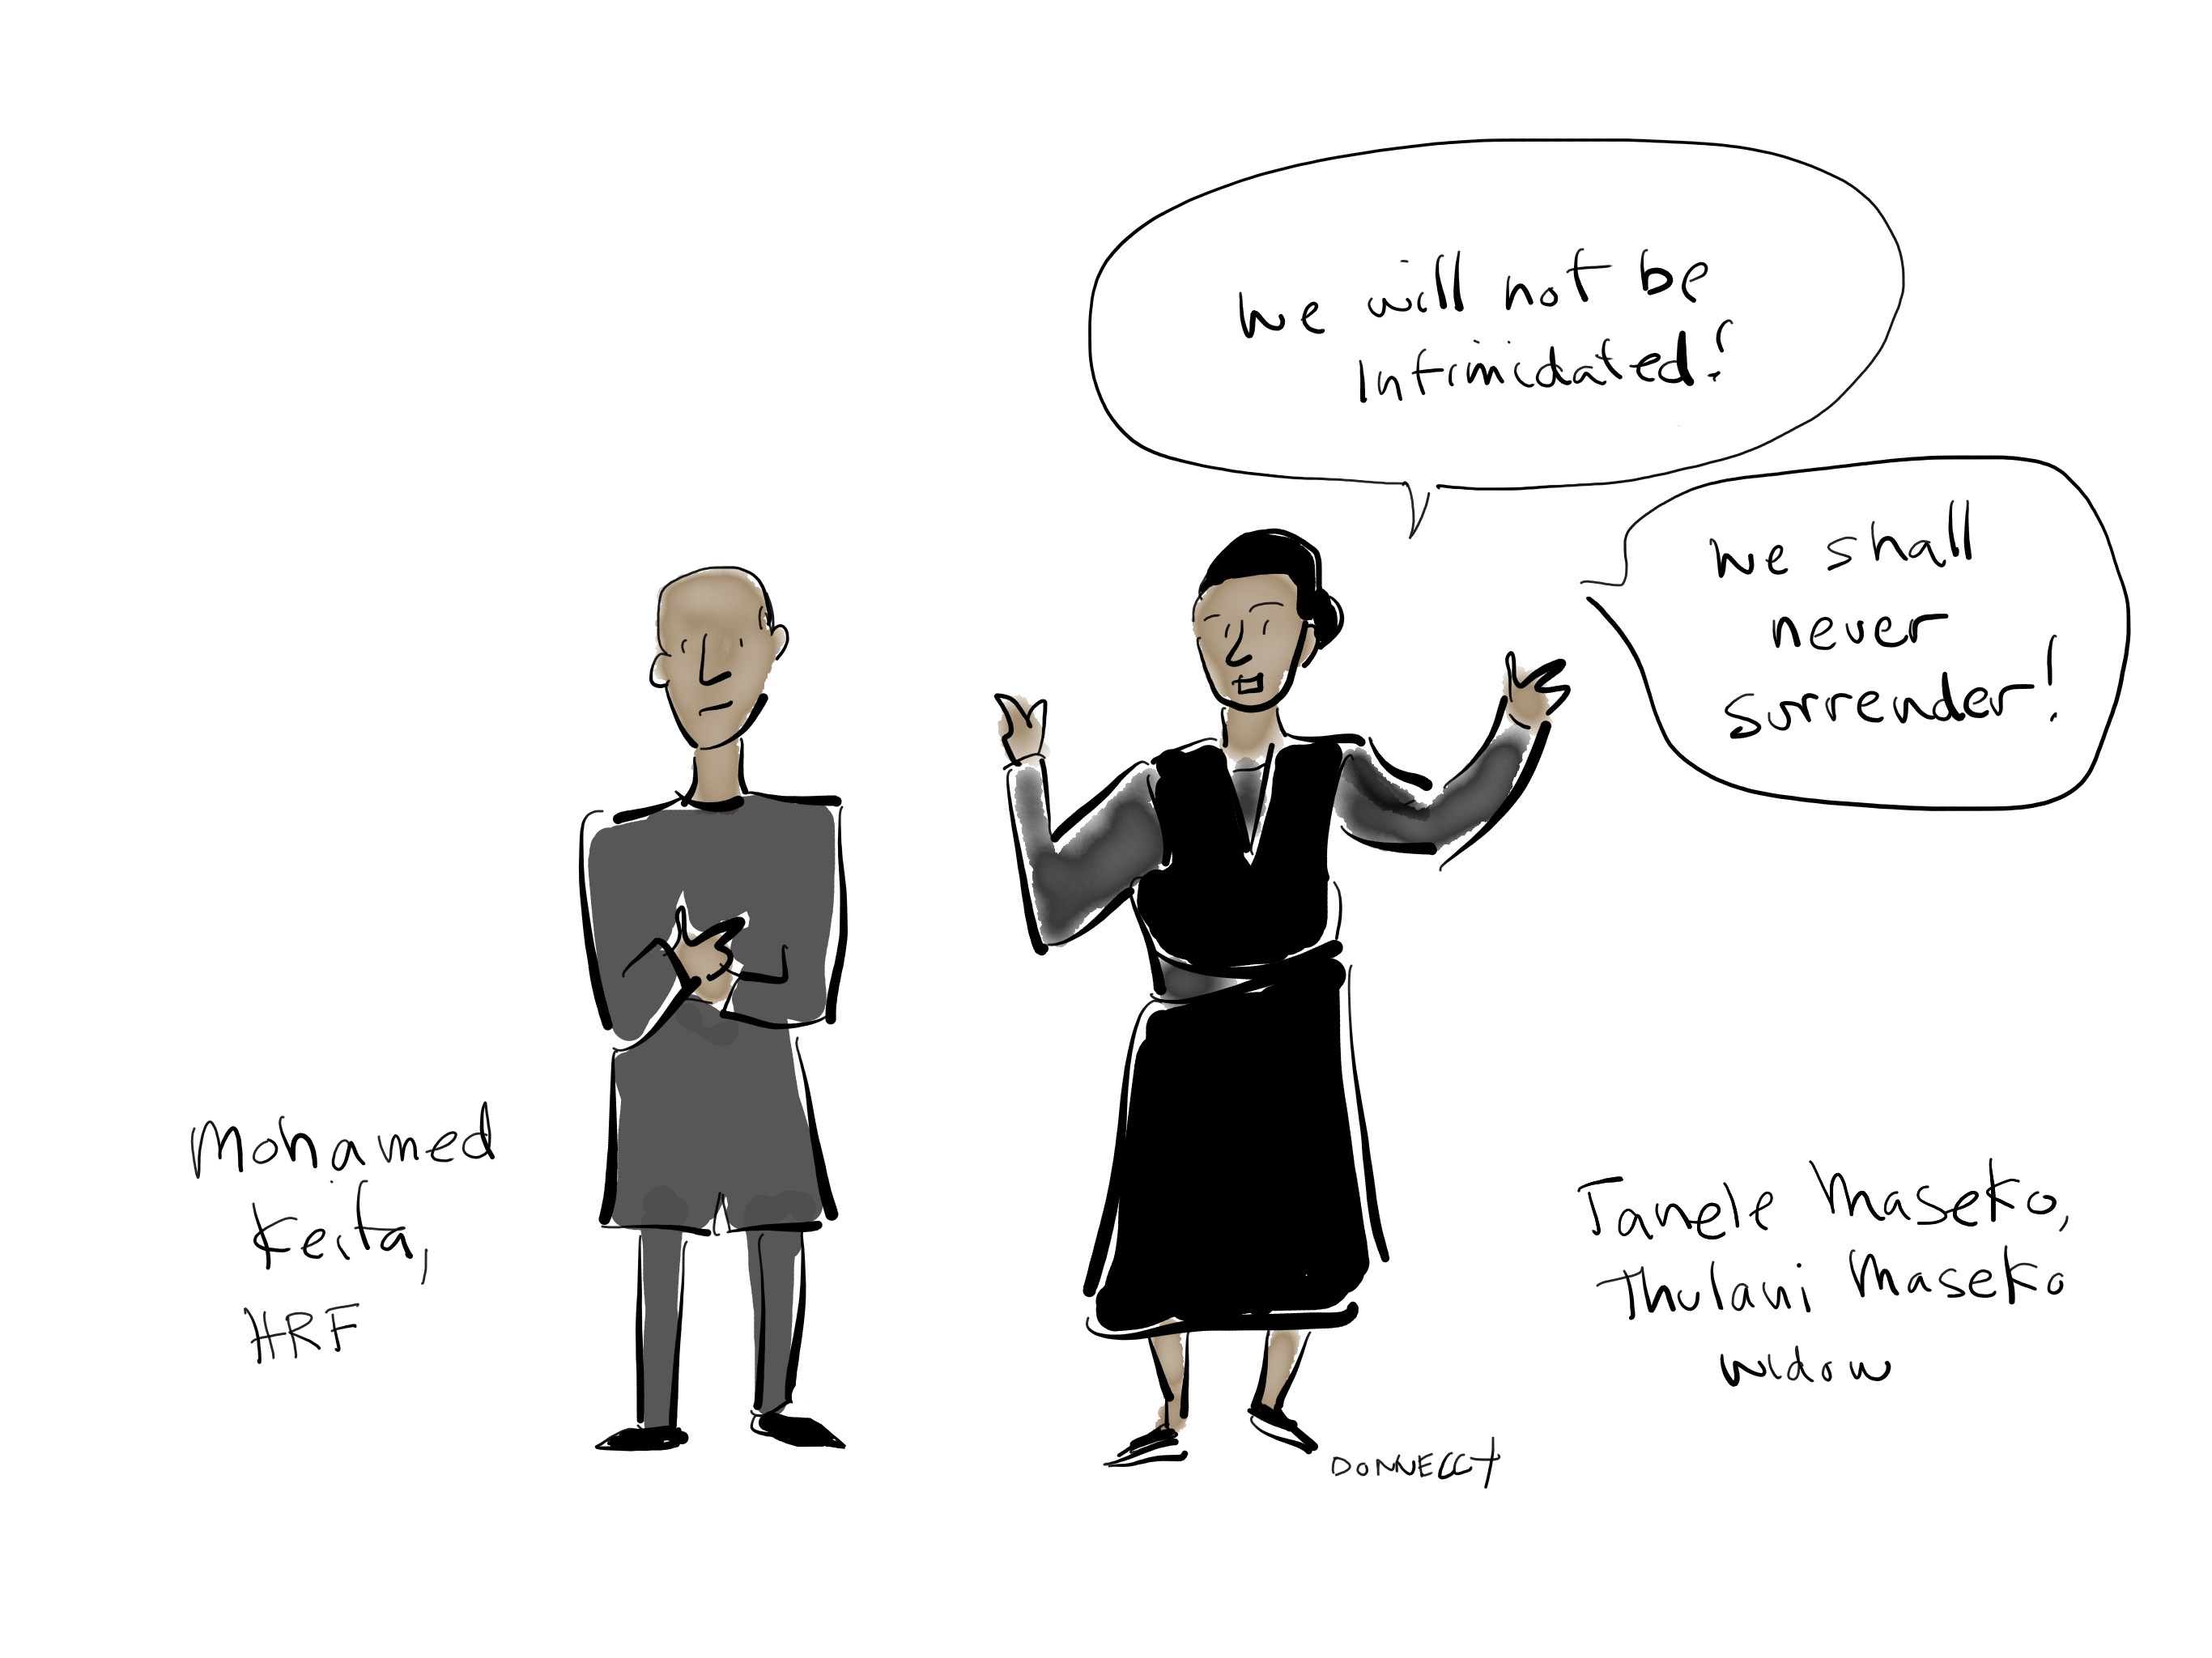 We will not be
Intimidated!
We shall
never
surrender!
Mohamed
Keita,
HRF
Tanele Maseko,
Thulani Maseko
widow
DONNELLY